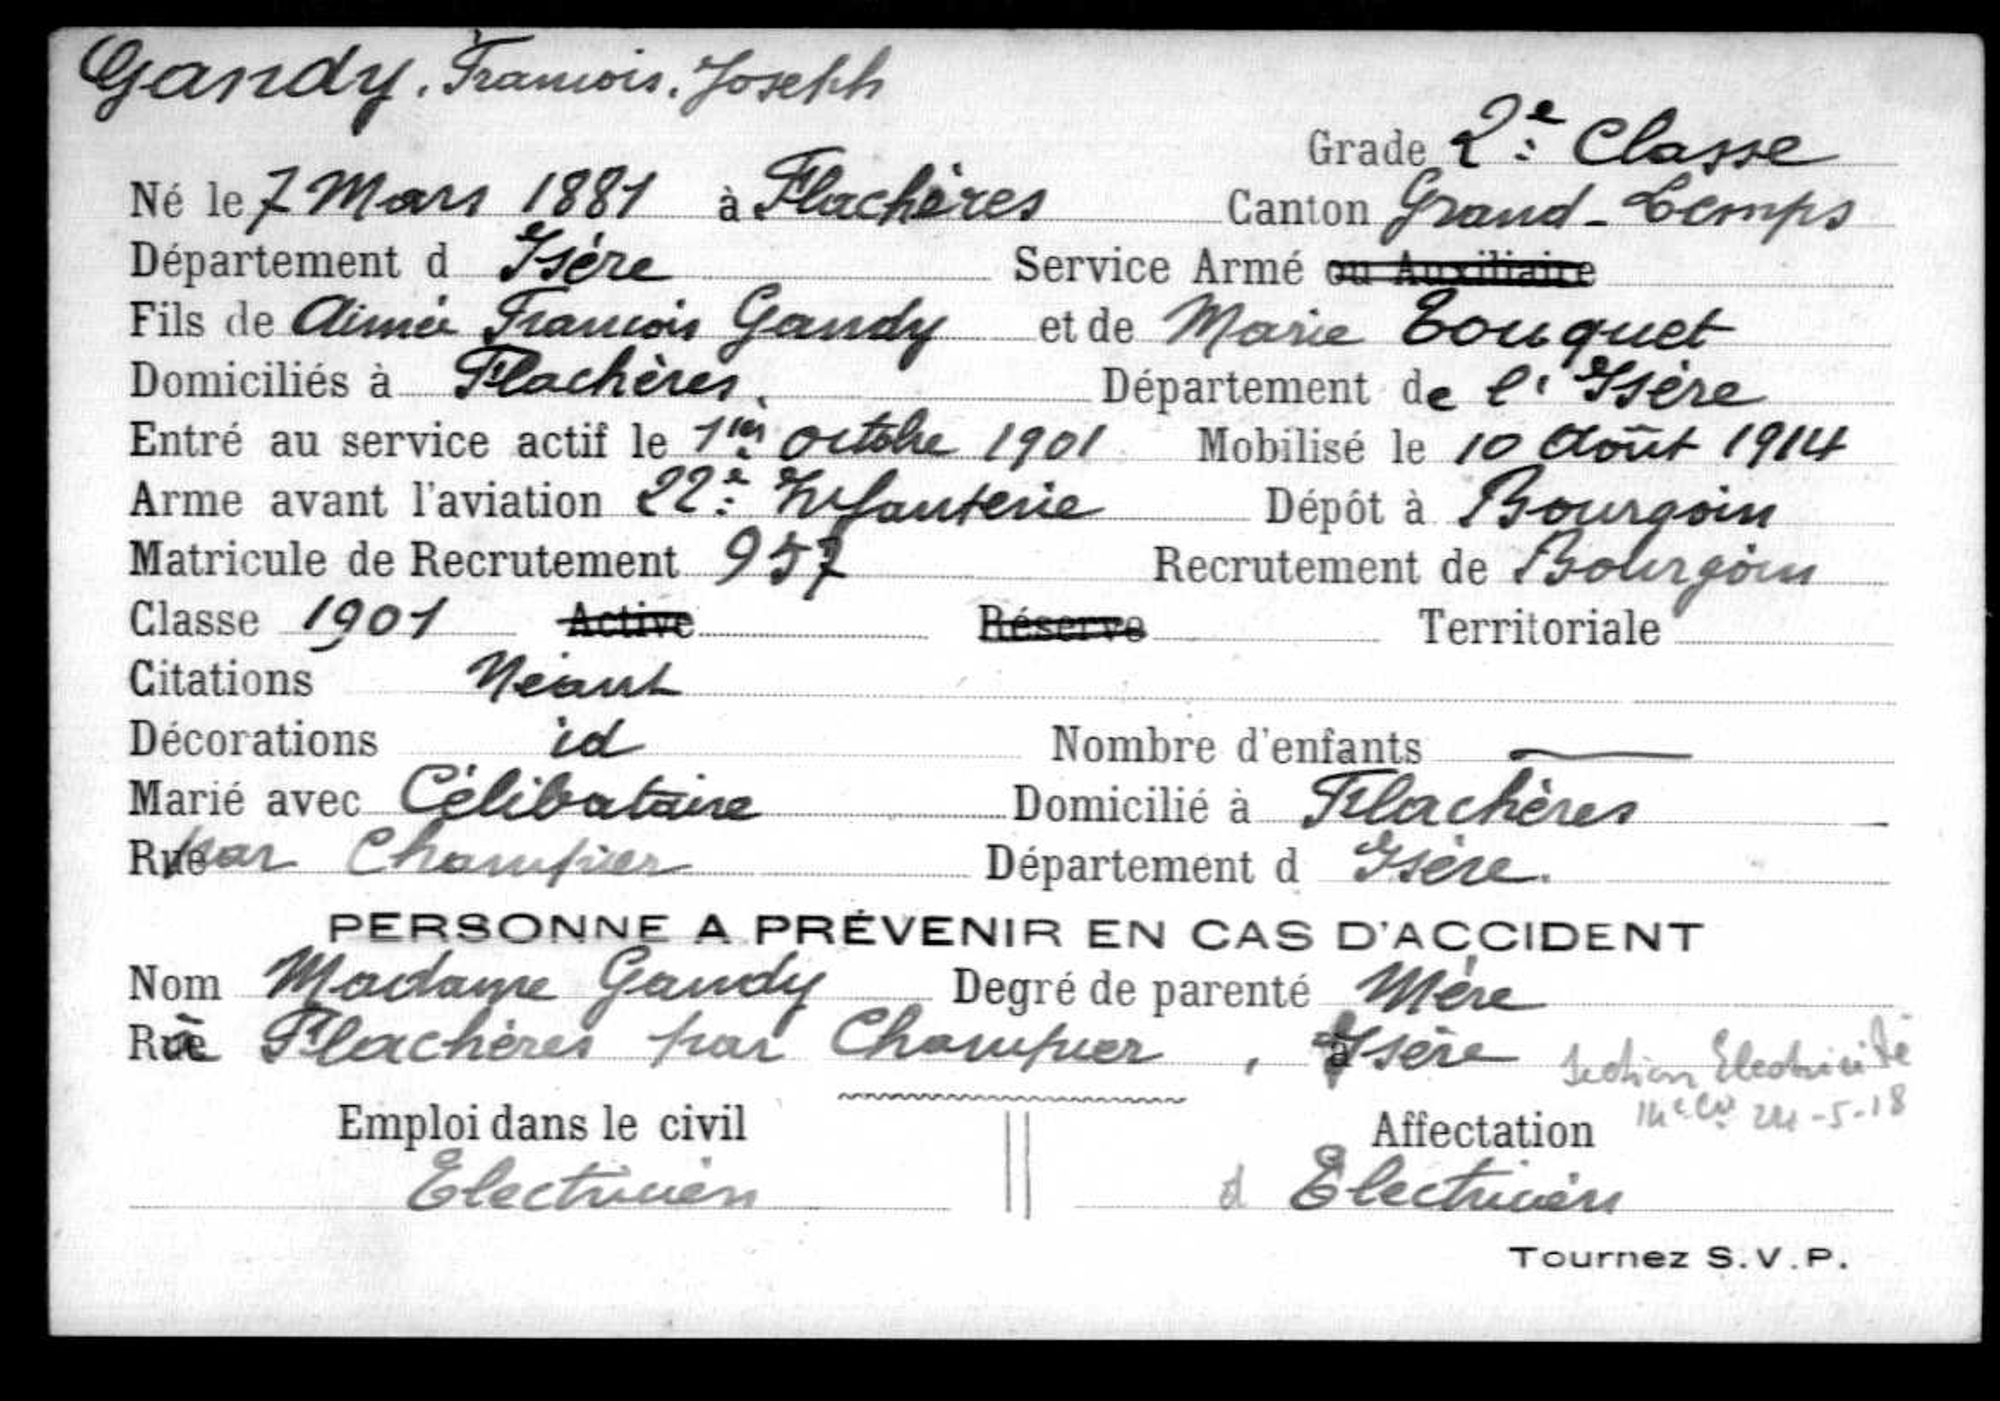 Gandy. Francois. Joseph
Grade 2e: Classe
Né le 7 Mars 1881 à Flachères Canton Grand-Lemps
Département d Isère Service Armé ou Auxiliaire
Fils de Aimée Francois Gandy et de Marie Touquet
Domiciliés à Flachères. Département de l'Isère
Entré au service actif le 1ier octobre 1901 Mobilisé le 10 Août 1914
Arme avant l'aviation 22e: Infanterie Dépôt à Bourgoin
Matricule de Recrutement 957 Recrutement de Bourgoin
Classe 1901 Active Réserve Territoriale
Citations Néant
Décorations id Nombre d'enfants —
Marié avec Célibataire Domicilié à Flachères
Rue par Champier Département d Isère.
PERSONNE A PRÉVENIR EN CAS D'ACCIDENT
Nom Madame Gandy Degré de parenté Mère
Rue à Flachères par Champier, à Isère
Section Electricité
24-5-18
Emploi dans le civil Affectation
Electricien d Electricien
Tournez S.V.P.